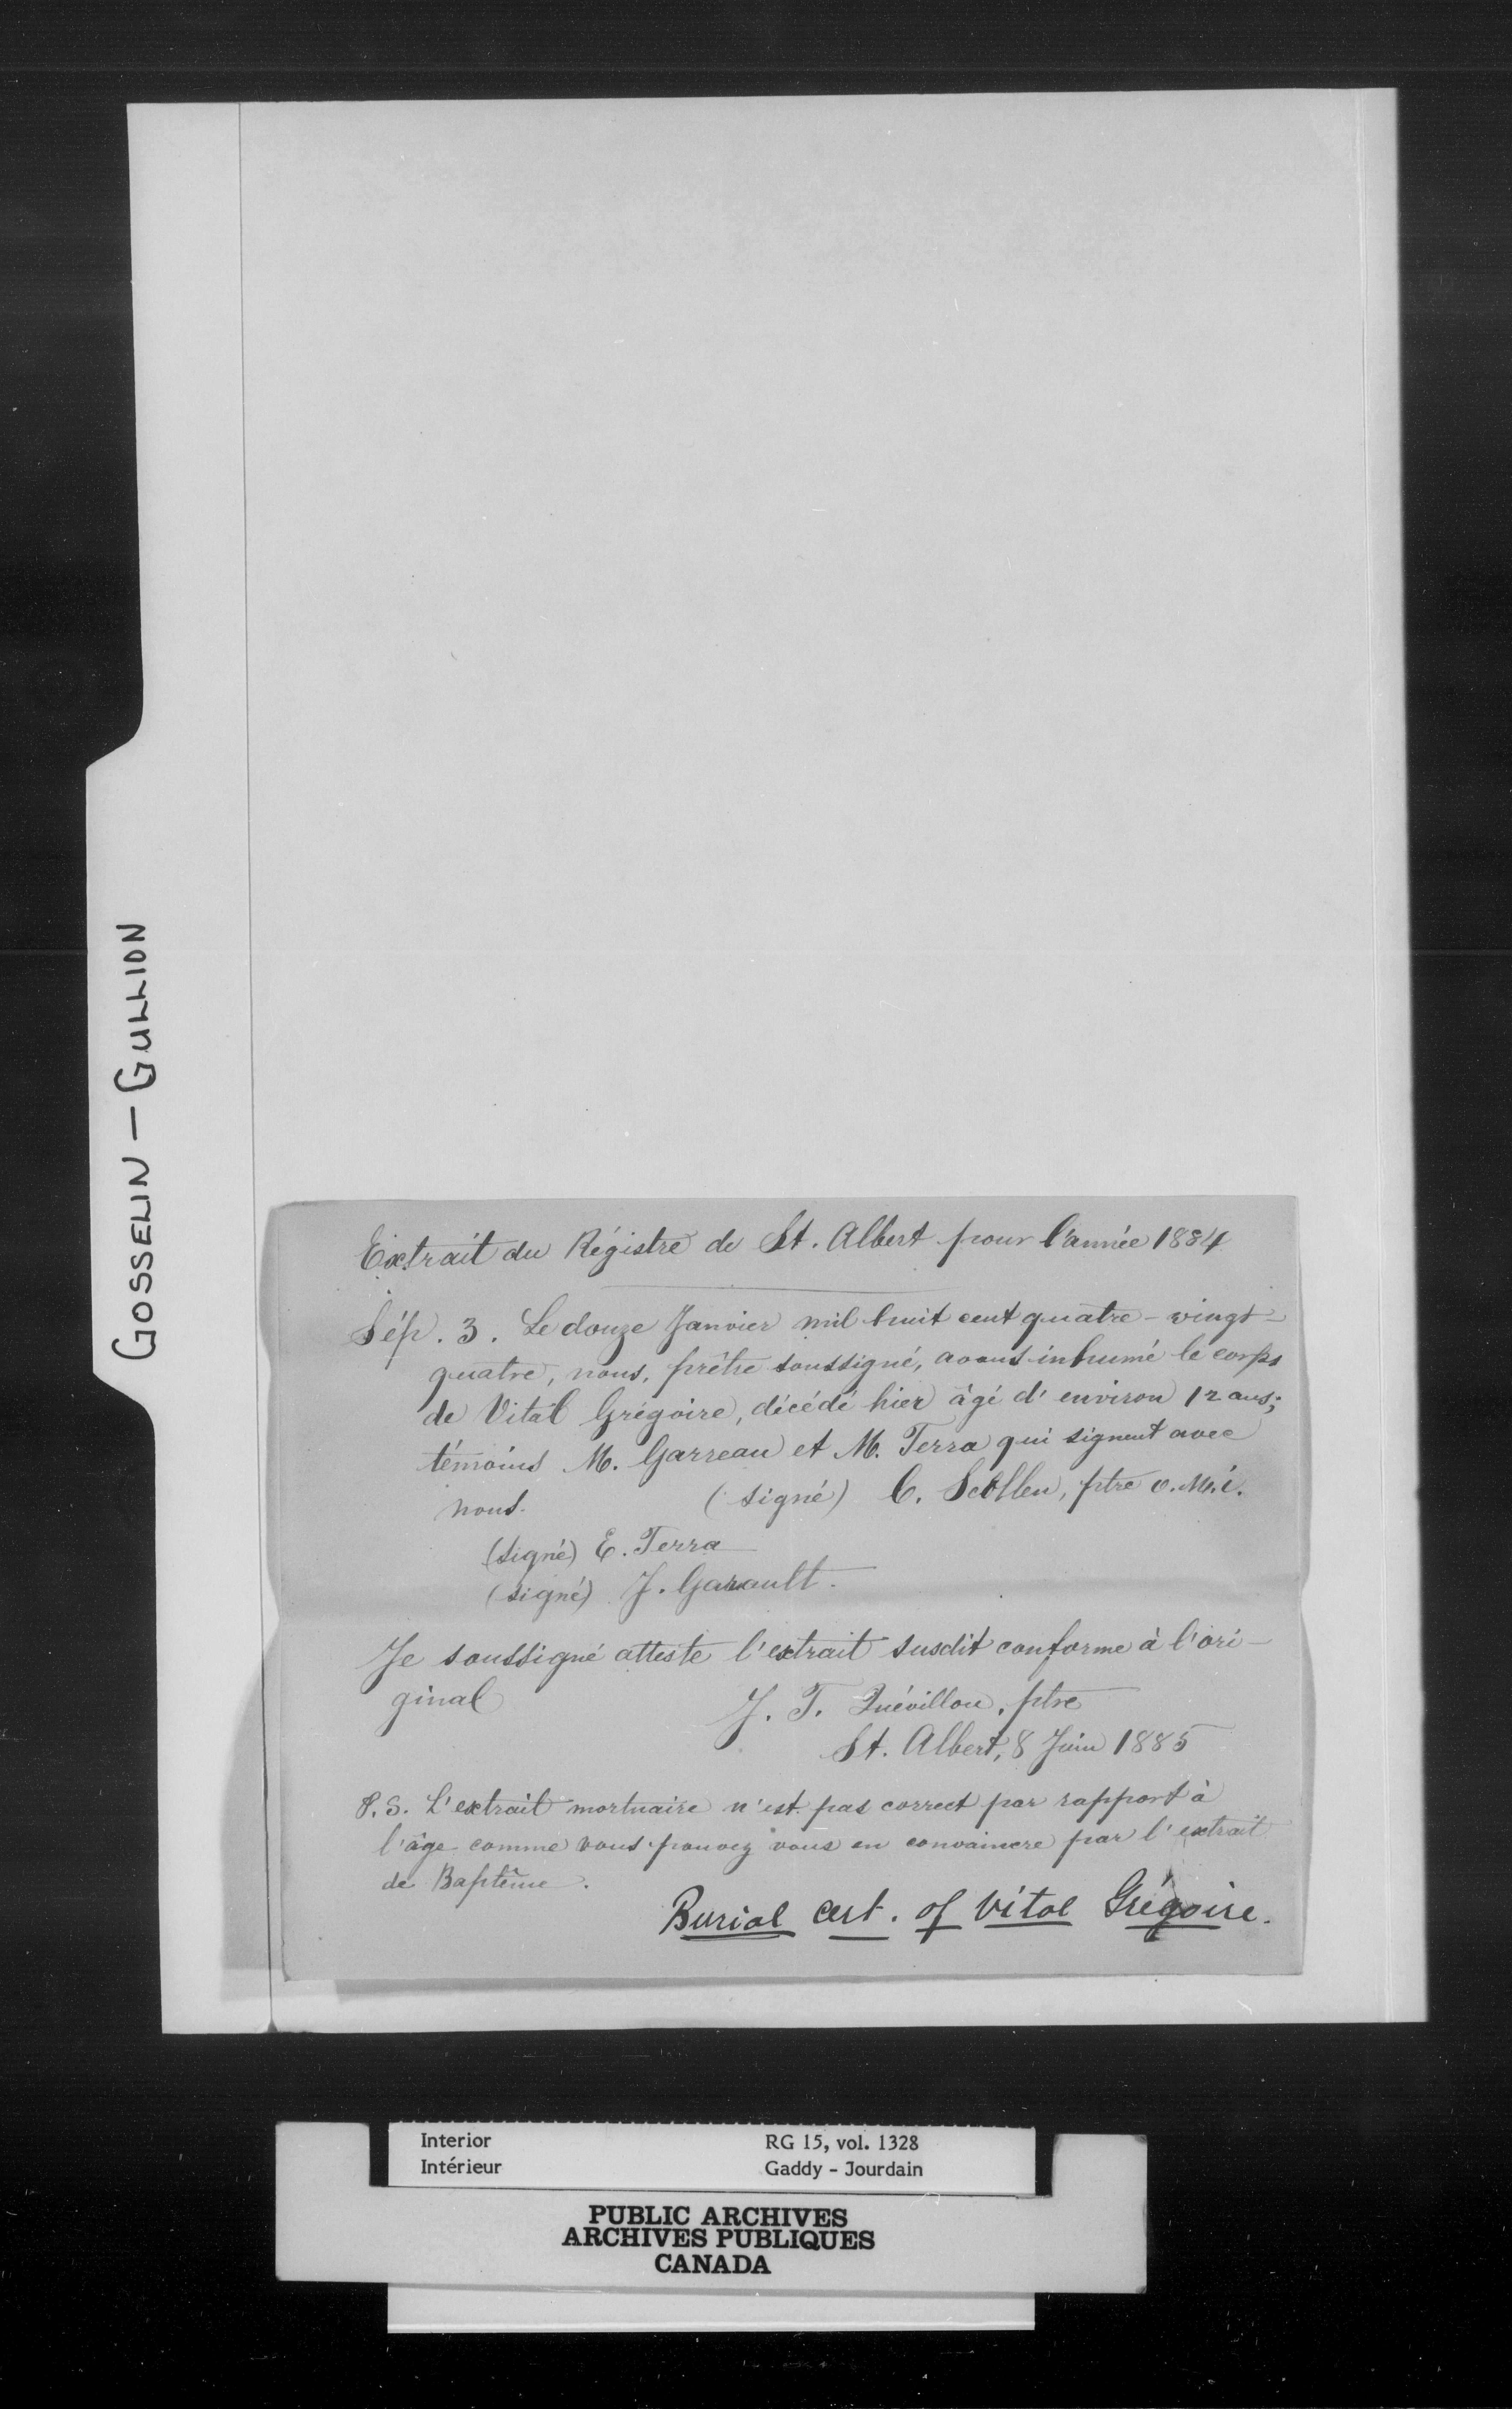 GOSSELIN — GULLION
Extrait du Régistre de St. Albert pour l'année 1884
Sép. 3. Le douze Janvier mil huit cent quatre-vingt-
quatre, nous, prêtre soussigné, avons inhumé le corps
de Vital Grégoire, décédé hier âgé d'environ 12 ans;
témoins M. Garreau et M. Terra qui signent avec
nous. (signé) C. Scollen, ptre o.m.i.
(signé) E. Terra
(signé) J. Garault.
Je soussigné atteste l'extrait susdit conforme à l'ori-
ginal J. T. Quévillon, ptre
St. Albert, 8 Juin 1885
P.S. L'extrait mortuaire n'est pas correct par rapport à
l'âge comme vous pouvez vous en convaincre par l'extrait
de Baptême.
Burial Cert. of Vital Grégoire.
Interior RG 15, vol. 1328
Intérieur Gaddy - Jourdain
PUBLIC ARCHIVES
ARCHIVES PUBLIQUES
CANADA